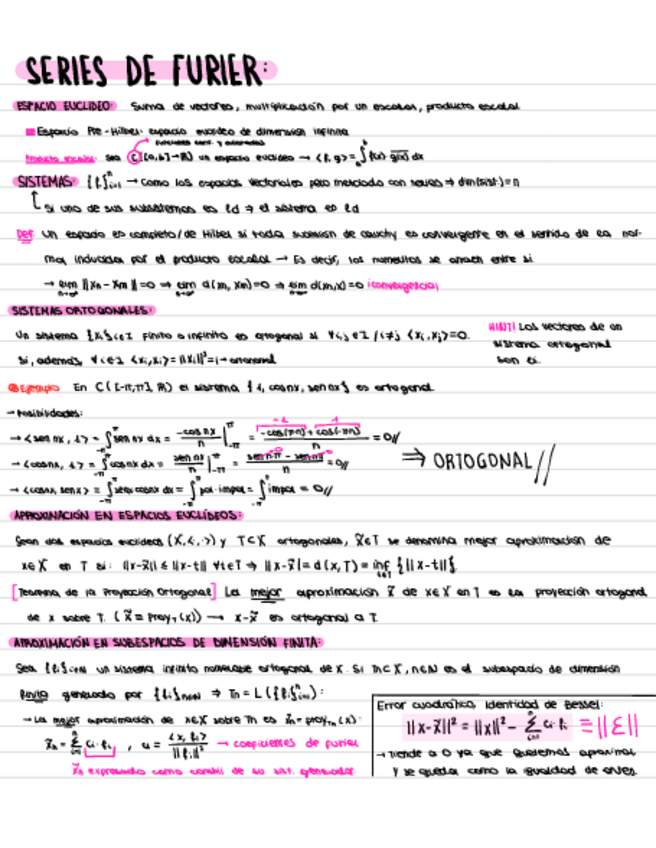 SERIES DE FURIER:
ESPACIO EUCLIDEO: Suma de vectores, multiplicación por un escalar, producto escalar
Espacio Pre-Hilber: espacio euclideo de dimensión infinita
funciones cont. y acotadas
Producto escalar: sea C([a,b]→ℝ) un espacio euclideo → <f,g> = ∫ₐᵇ f(x) g(x) dx
SISTEMAS: {fᵢ}ⁿᵢ₌₁ → como los espacios vectoriales pero mezclado con series ⇒ dim(sist.)=n
Si uno de sus subsistemas es ld ⇒ el sistema es ld
Def: Un espacio es completo/de Hilber si toda sucesión de cauchy es convergente en el sentido de la nor-
ma inducida por el producto escalar → Es decir, los numeritos se atraen entre si
→ lim ||xn - xm|| = 0 ⇒ lim d(xn, xm)=0 ⇒ lim d(xn,x)=0 ¡convergencia!
SISTEMAS ORTOGONALES:
Un sistema {xᵢ}ᵢ∈I finito o infinito es ortogonal si ∀i,j ∈ I / i≠j <xᵢ,xⱼ>=0. HINT! Los vectores de un
sistema ortogonal
Si, además, ∀i∈I <xᵢ,xᵢ> = ||xᵢ||² = 1 → ortonormal son li.
Ejemplo En C([-π,π], ℝ) el sistema {1, cosnx, sennx} es ortogonal.
→ Posibilidades:
→ <sennx, 1> = ∫ sennx dx = -cosnx/n |π -π = -cos(πn) + cos(-πn) / n = 0//
→ <cosnx, 1> = ∫ cosnx dx = sennx/n |π -π = sennπ - sennπ / n = 0//
⇒ ORTOGONAL//
→ <cosnx, senx> = ∫ senx cosnx dx = ∫ par · impar = ∫ impar = 0//
APROXIMACIÓN EN ESPACIOS EUCLÍDEOS:
Sean dos espacios euclídeos (X,<,>) y T⊂X ortogonales, x̃∈T se denomina mejor aproximación de
x∈X en T si: ||x-x̃|| ≤ ||x-t|| ∀t∈T ⇒ ||x-x̃|| = d(x,T) = inf {||x-t||}
[Teorema de la Proyección Ortogonal] La mejor aproximación x̃ de x∈X en T es la proyección ortogonal
de x sobre T. (x̃ = Proy_T(x)) → x-x̃ es ortogonal a T.
APROXIMACIÓN EN SUBESPACIOS DE DIMENSIÓN FINITA:
Sea {fᵢ}ᵢ∈ℕ un sistema infinito numerable ortogonal de X. Si Tn⊂X, n∈ℕ es el subespacio de dimensión
finita generado por {fᵢ} ⇒ Tn = L({fᵢ}ⁿᵢ₌₁):
→ La mejor aproximación de x∈X sobre Tn es x̃n = proy_Tn(x):
x̃n = Σ cᵢ·fᵢ, cᵢ = <x, fᵢ> / ||fᵢ||² → coeficientes de furier
x̃n expresado como combli de su sist. generador
Error cuadrático, Identidad de Bessel:
||x-x̃||² = ||x||² - Σ cᵢ·fᵢ = ||Ɛ||
→ Tiende a 0 ya que queremos aproximar
y se queda como la igualdad de